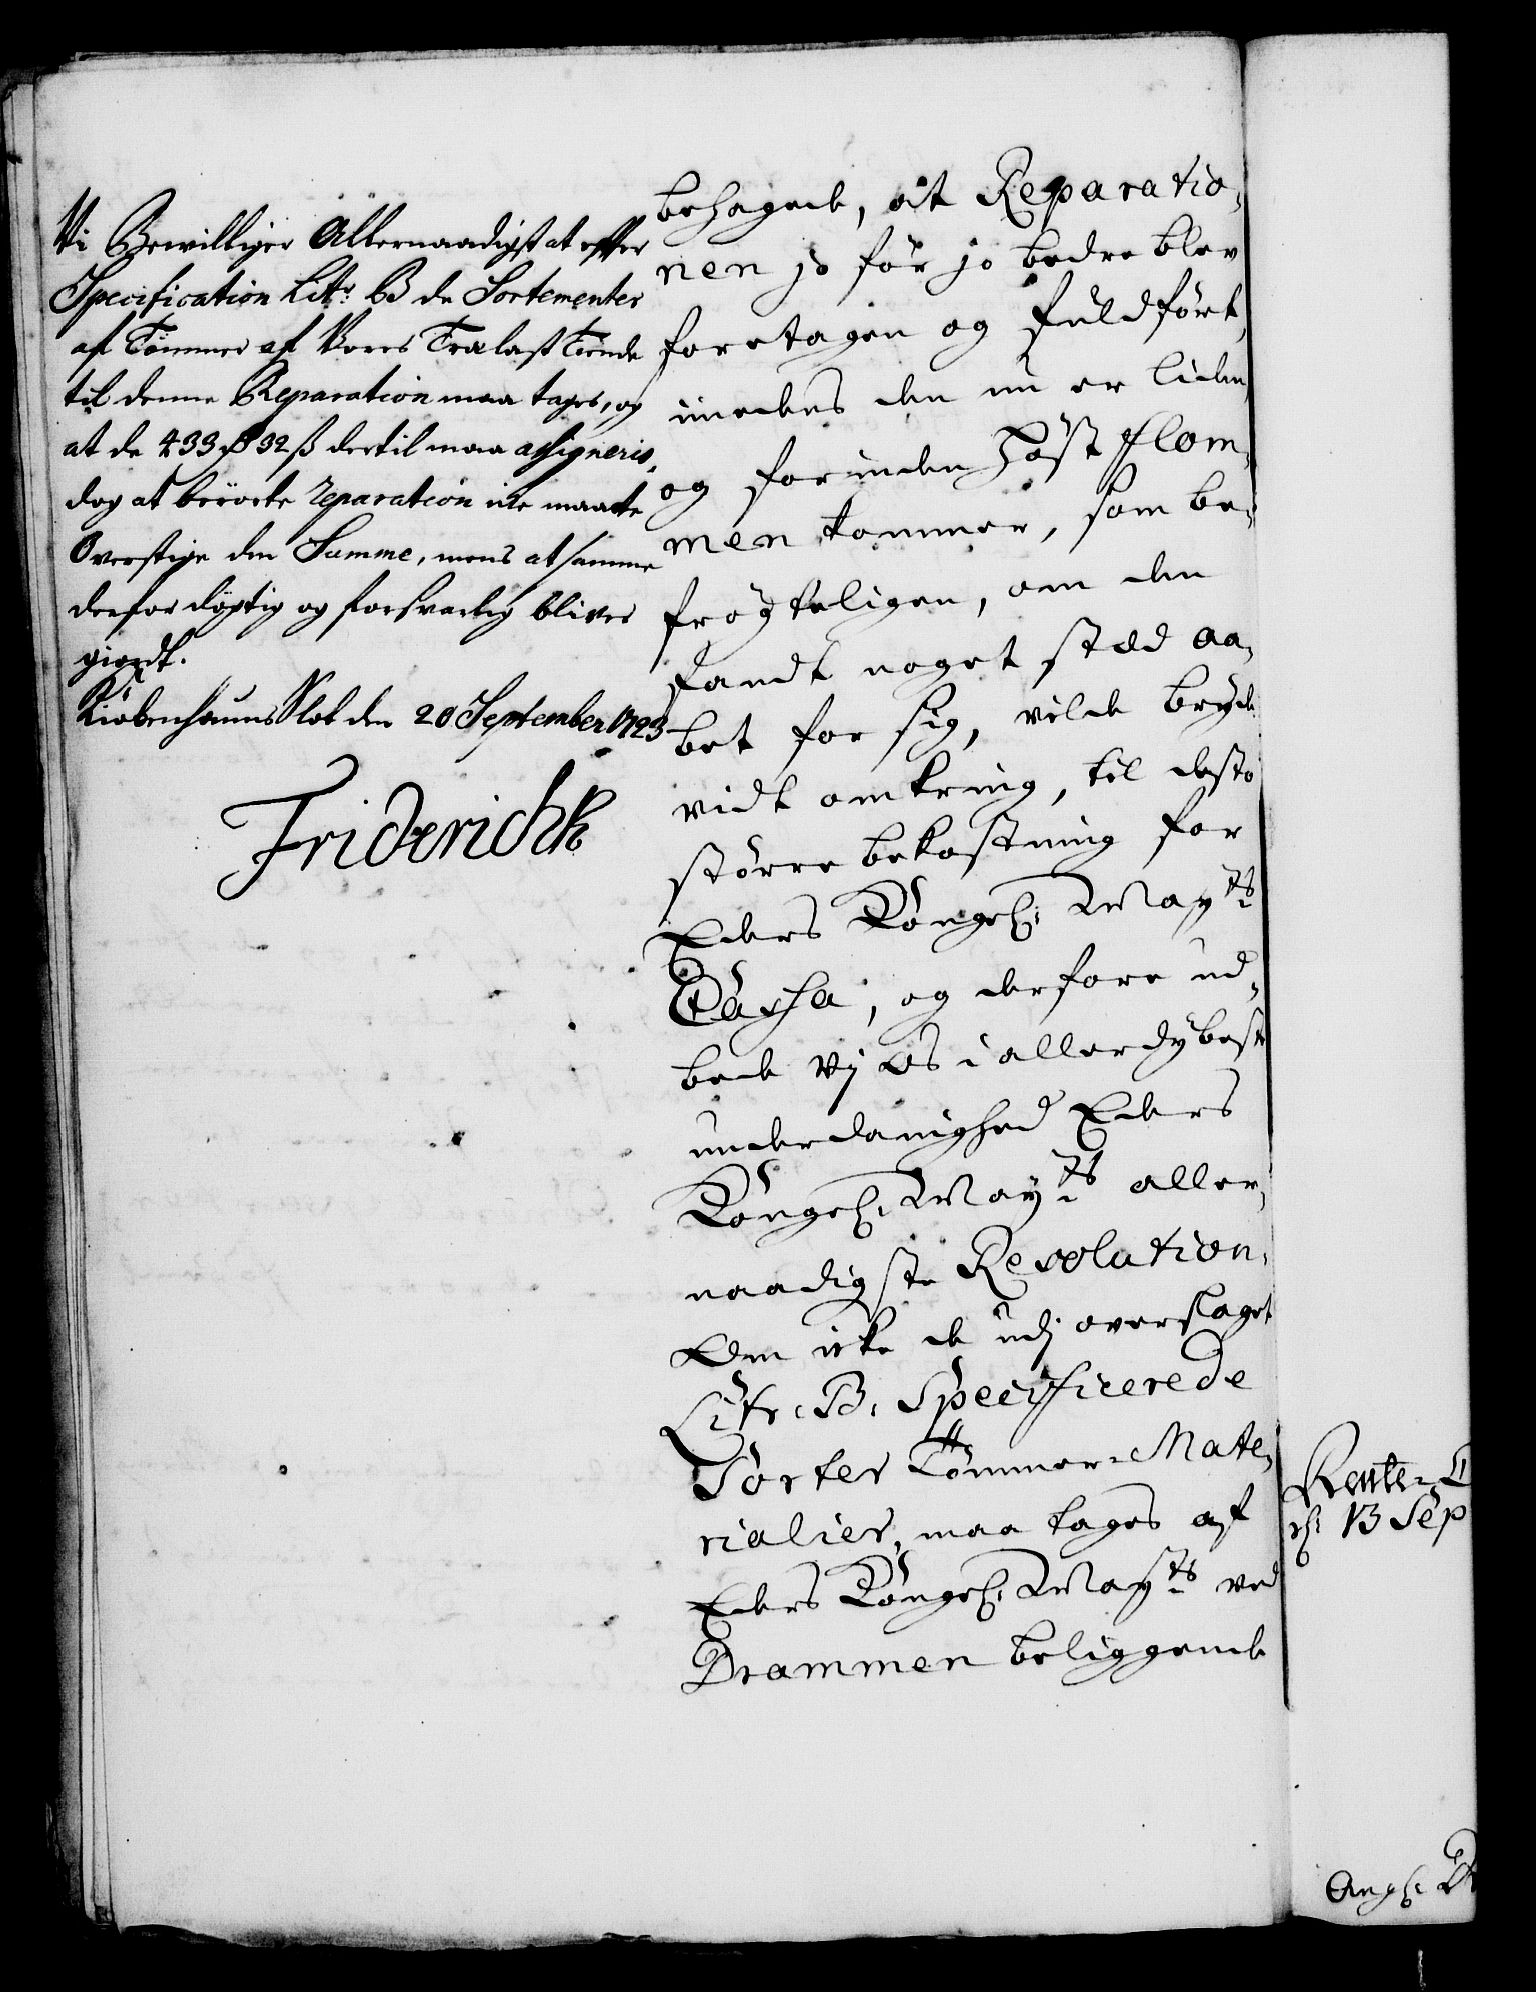 Vi Bewilliger Allernaadigst at efter
Specification Litr: B de Sortementer
af Tømmer af Vores Tralast Tiende
til denne Reparation maa tages, og
at de 433 rd 32 ß dertil maa assigneris,
dog at berörte reparation icke maatte
Overstige den Summe, mens at samme
derfor dögtig og forsvarlig bliver
giordt.
Kiøbenhauns Slot den 20 September 1723
Friderich R
behagede, at Reparatio,
nen jo för jo bedre blev
foretagen og fuldfört,
imedens den nu er liden,
og forinden Höst flom,
men kommer, som be,
frögteligen, om den
fandt noget stæd aa,
bet for sig, vilde bryde
vidt omkring, til desto
större bekostning for
Eders Kongel: Mayts
Cassa, og derfore ud,
bede Vj Os i allerdybeste
underdanighed Eders
Kongel: Mayts aller,
naadigste Resolution,
Om icke de udj overslaget
Litr: B: Specificerede
Sorter Tömmer-Mate,
rialier, maa tages af
Eders Kongel: Mayts ved
Drammen beliggende
Rente-C
d: 13 Sep
Angl: